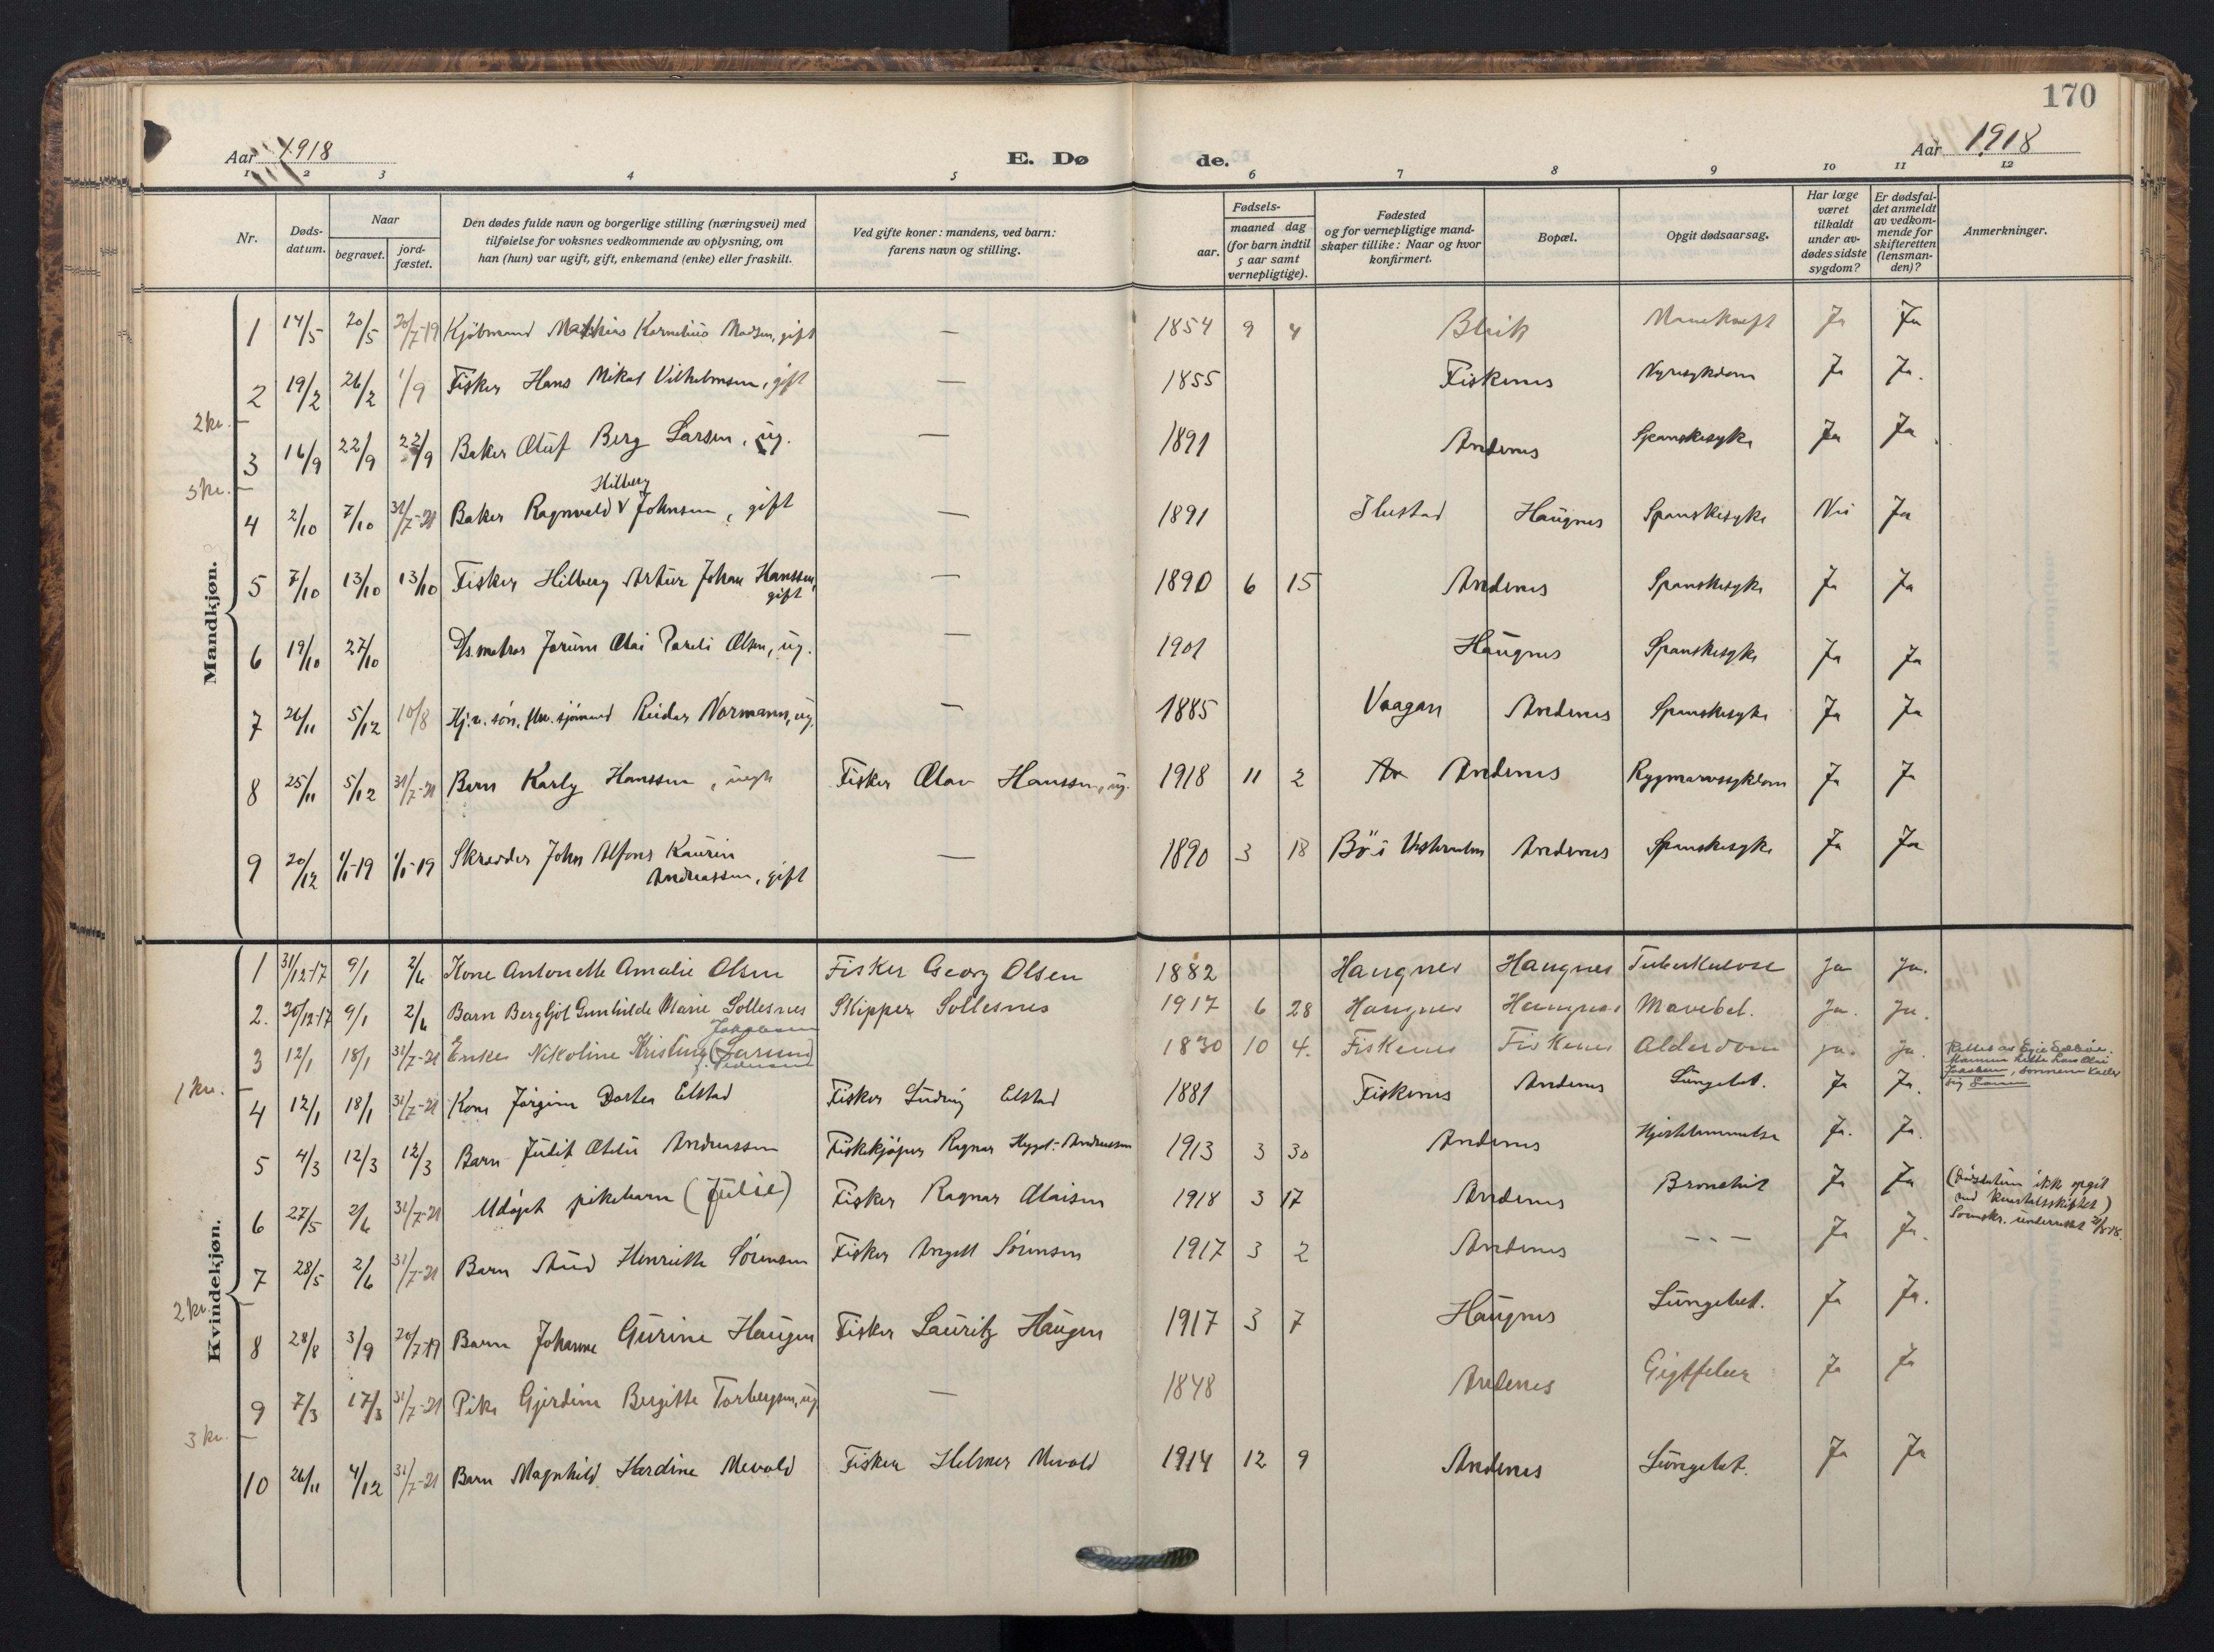 170
Aar 1918
E. Dø
de.
Aar 1918
1 2 3 4 5 6 7 8 9 10 11 12
Nr.
Døds-
datum.
Naar
begravet.
jord-
fæstet.
Den dødes fulde navn og borgerlige stilling (næringsvei) med
tilføielse for voksnes vedkommende av oplysning, om
han (hun) var ugift, gift, enkemand (enke) eller fraskilt.
Ved gifte koner: mandens, ved barn:
farens navn og stilling.
Fødsels-
aar.
maaned dag
(for barn indtil
5 aar samt
vernepligtige).
Fødested
og for vernepligtige mand-
skaper tillike: Naar og hvor
konfirmert.
Bopæl.
Opgit dødsaarsag.
Har læge
været
tilkaldt
under av-
dødes sidste
sygdom?
Er dødsfal-
det anmeldt
av vedkom-
mende for
skifteretten
(lensman-
den)?
Anmerkninger.
Mandkjøn.
1 14/5 20/5 20/7-19 Kjøbmand Mathias Kornelius Madsen, gift — 1854 9 4 Bleik Mavekræft Ja Ja
2 19/2 26/2 1/9 Fisker Hans Mikal Vilhelmsen, gift — 1855 Fiskenes Nyresykdom Ja Ja.
2 kr.
3 16/9 22/9 22/9 Baker Oluf Berg Larsen, ug. — 1891 Andenes Spanskesyke Ja Ja
3 kr.
Hilberg
4 2/10 7/10 31/7-21 Baker Ragnvald V Johnsen, gift — 1891 Haugnes Spanskesyke Nei Ja
5 7/10 13/10 13/10 Fisker Hilberg Artur Johan Hanssen, — 1890 6 15 Andenes Spanskesyke Ja Ja
gift
6 19/10 27/10 Jorum Olai Pareli Olsen, ug. — 1901 Haugnes Spanskesyke Ja Ja
7 26/11 5/12 10/8 sjømand Reidar Normann, ug. — 1885 Vaagan Andenes Spanskesyke Ja Ja
8 25/11 5/12 31/7-21 Barn Karly Hanssen, uegte Fisker Olav Hanssen, ug. 1918 11 2 An Andenes Rygmarvssykdom Ja Ja
9 20/12 1/1-19 1/1-19 Skrædder John Alfons Kaurin — 1890 3 18 Bø i Vesteraalen Andenes Spanskesyke Ja Ja
Andreassen, gift
Kvindekjøn.
1 31/12-17 9/1 2/6 Kone Antonette Amalie Olsen Fisker Georg Olsen 1882 Haugnes Haugnes Tuberkulose Ja Ja.
2. 30/12-17 9/1 2/6 Barn Bergljot Gunhilde Marie Sollesnes Skipper Sollesnes 1917 6 28 Haugnes Haugnes Mavebet. Ja. Ja.
Jakobsen
3 12/1 18/1 31/7-21 Enke Nikoline Kristine (Larsen) 1830 10 4. Fiskenes Fiskenes Alderdom Ja. Ja.
f. Pedersen
1 kr.
4 12/1 18/1 31/7-21 Kone Jørgine Dortea Elstad Fisker Ludvig Elstad 1881 Fiskenes Andenes Lungebet. Ja Ja.
5 4/3 12/3 12/3 Barn Judit Otelie Andreassen Fiskekjøper Ragnar Andreassen 1913 3 30 Andenes Hjertelammelse Ja. Ja.
6 27/5 2/6 31/7-21 Udøpt pikebarn (Julie) Fisker Ragnar Olaisen 1918 3 17 Andenes Bronchit Ja Ja (Dødsdatum ikke opgit
ved kvartalsskiftet)
Sorenskr. underrettet
7 28/5 2/6 31/7-21 Barn Aud Henriette Sørensen Fisker Angell Sørensen 1917 3 2 Andenes - - - Ja Ja.
2 kr.
8 28/8 3/9 20/7-19 Barn Johanne Gurine Haugen Fisker Lauritz Haugen 1917 3 7 Haugnes Lungebet. Ja Ja.
9 7/3 17/3 31/7-21 Pike Gjerdine Bergitte Torbergsen, ug — 1848 Andenes Gigtfeber Ja Ja
3 kr.
10 26/11 4/12 31/7-21 Barn Magnhild Hardine Mevold Fisker Helmer Mevold 1914 12 9 Andenes Lungebet. Ja Ja